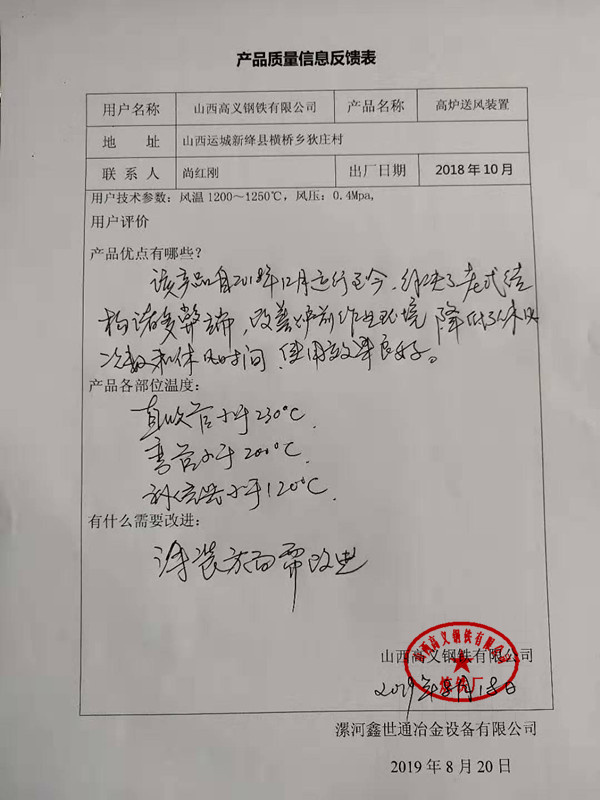 产品质量信息反馈表
用户名称 山西高义钢铁有限公司 产品名称 高炉送风装置
地 址 山西运城新绛县横桥乡狄庄村
联系人 尚红刚 出厂日期 2018年10月
用户技术参数：风温1200～1250℃，风压：0.4Mpa,
用户评价
产品优点有哪些？
该产品自2018年12月运行至今，解决了老式结
构诸多弊端，改善炉前作业环境 降低了休风
次数和休风时间，使用效果良好。
产品各部位温度：
直吹管小于230℃.
弯管小于200℃.
小于120℃.
有什么需要改进：
涂装方面需改进
山西高义钢铁有限公司
炼铁厂
山西高义钢铁有限公司
2019年8月18日
漯河鑫世通冶金设备有限公司
2019年8月20日